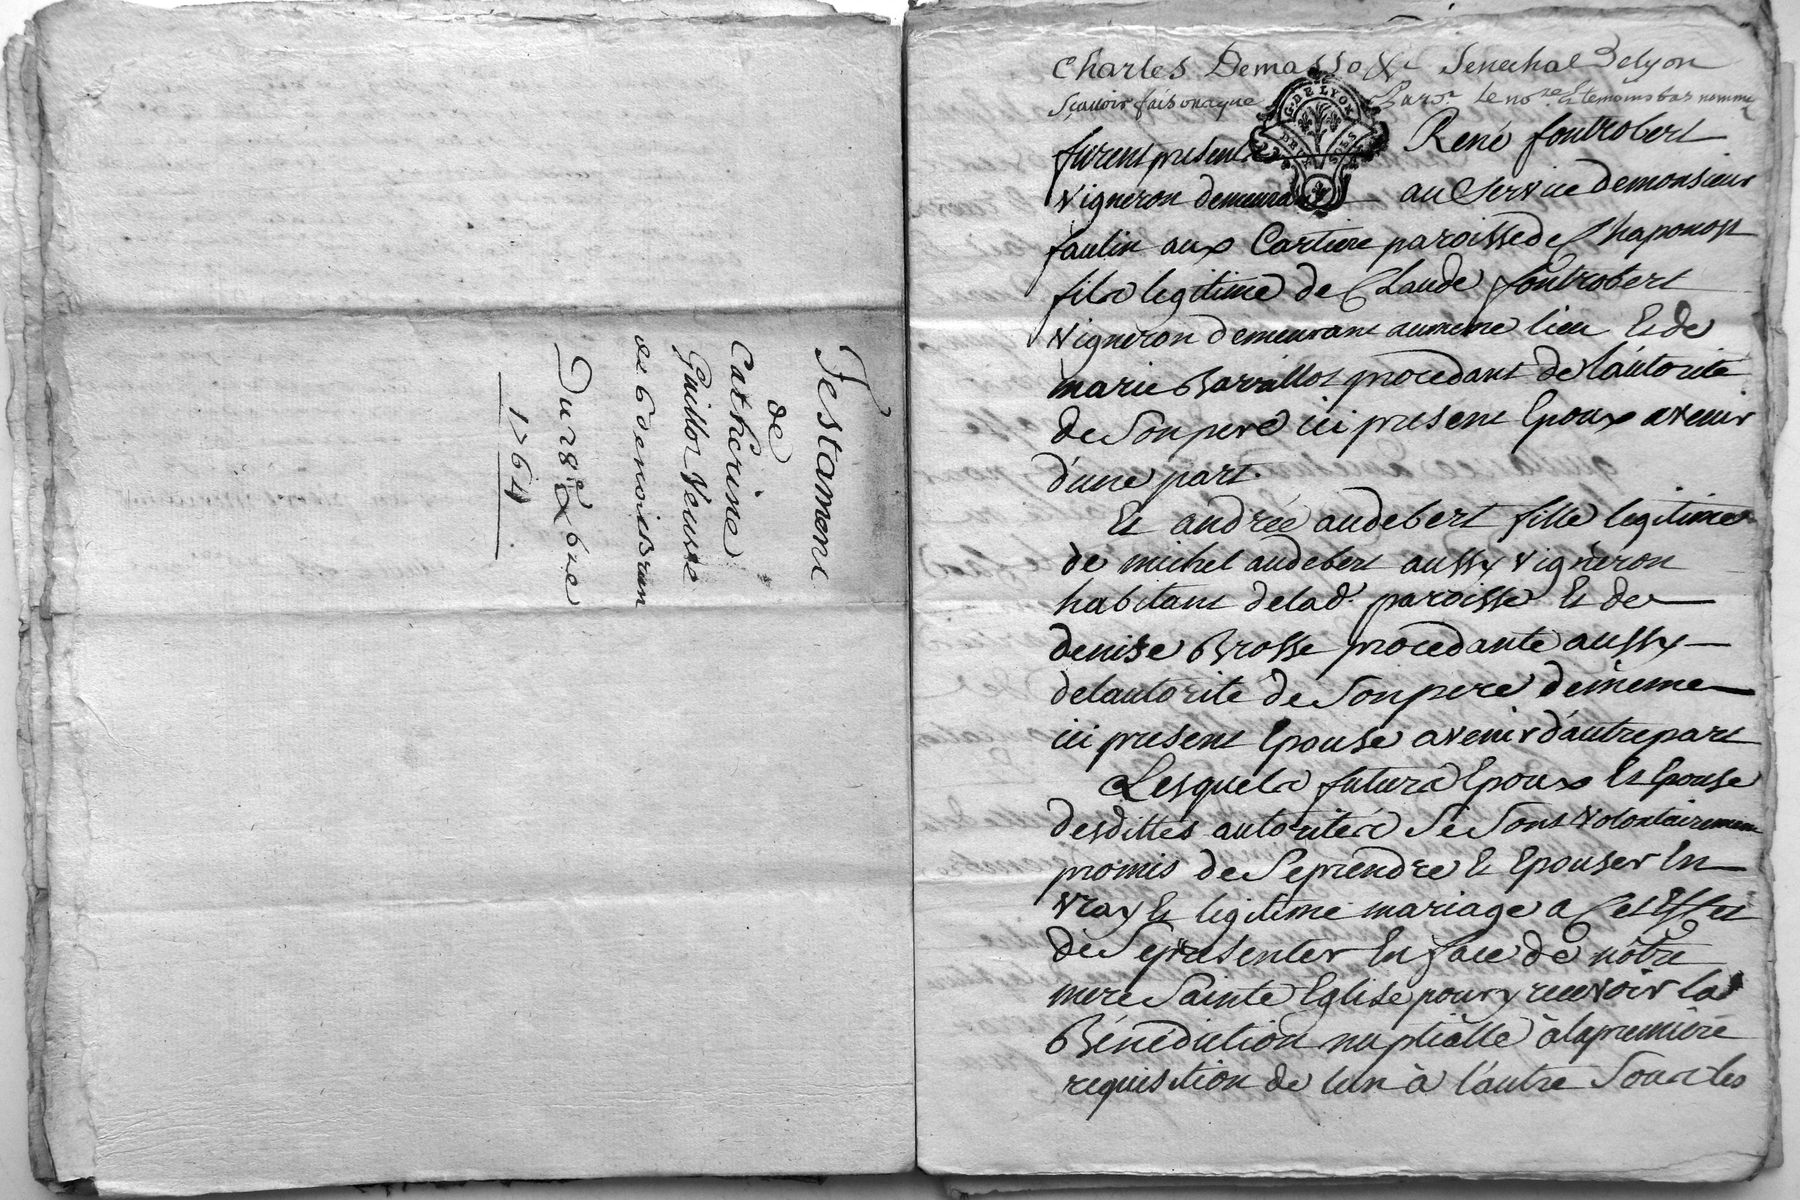 Testament
de
Catherine
Guillot Veuve
de Benoit Brun
Du 18e 8bre
1764
Charles Demasso &c Senechal Delyon
Sçavoir faisons que Pardt. le nore. & temoins bas nommés
G. DE LYON
DEUX SOLS
furent present René fontrobert
Vigneron demeurant au Service de monsieur
faulin aux Cartiere paroisse de Chaponost
fils legitime de Claude fontrobert
Vigneron demeurant au meme lieu Et de
marie Barallot procedant de l'autorité
de Son pere ici present Epoux avenir
d'une part.
Et andrée audebert fille legitime
de michel audebert aussy Vigneron
habitant de lad. paroisse Et de
denise Brosse procedante aussy
de l'autorite de Son pere de meme
ici present Epouse avenir d'autre part
Lesquels futurs Epoux Et Epouse
desdittes autorités Se Sont Volontairement
promis de Se prendre & Epouser En
Vray Et legitime mariage a Cet Effet
de Se presenter En face de nôtre
mere Sainte Eglise pour y recevoir la
Bénédiction nuptialle à la premiere
requisition de lun à l'autre Sous les